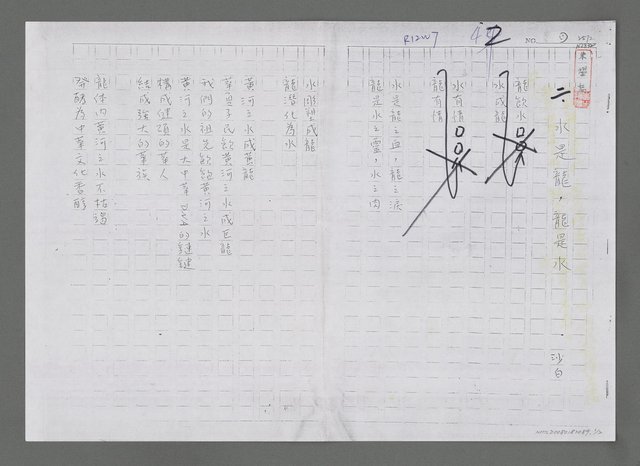 R12W7
2
NO.
二、水是龍，龍是水
沙白
龍飲水
水成龍
水有情
龍有情
水是龍之血，龍之淚
龍是水之靈，水之肉
水雕塑成龍
龍潛化為水
黃河之水成黃龍
華夏子民飲黃河之水成巨龍
我們的祖先飲飽黃河之水
黃河之水是大中華DNA的鏈鍵
構成健碩的華人
結成強大的華族
龍体內黃河之水不枯竭
發酵為中華文化香醇